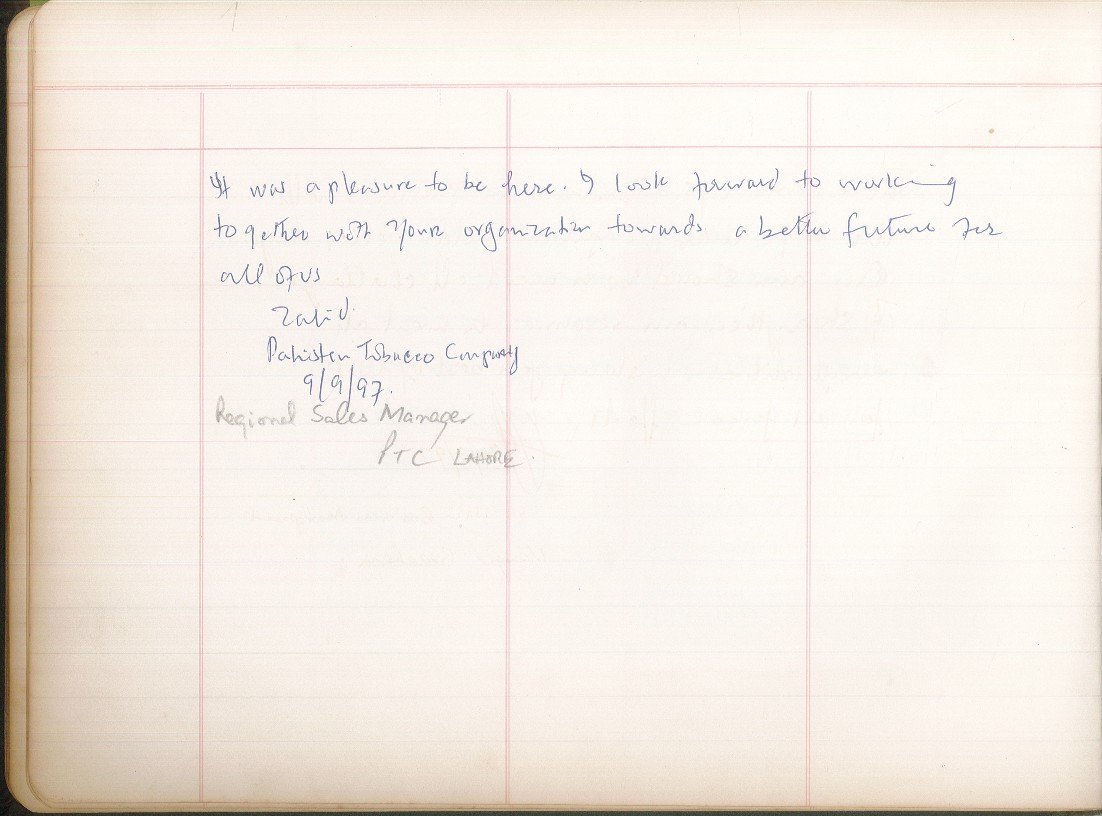 It was a pleasure to be here. I look forward to working
together with your organization towards a better future for
all of us
Zahid.
Pakistan Tobacco Company
9/9/97.
Regional Sales Manager
PTC LAHORE.